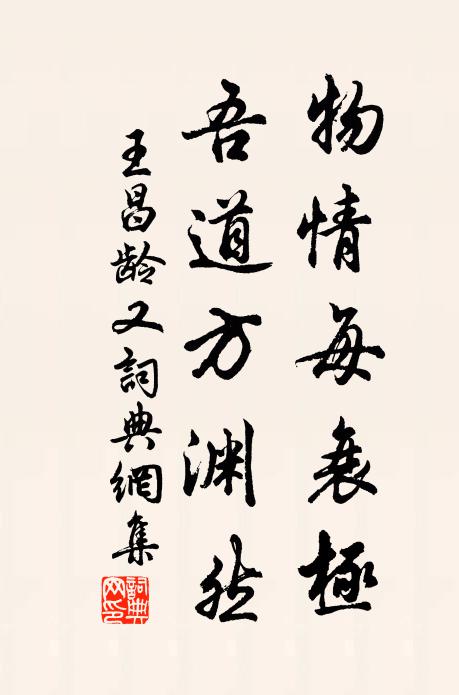 物情每衰極
吾道方淵然
王昌齡又詞典網集
詞典网印